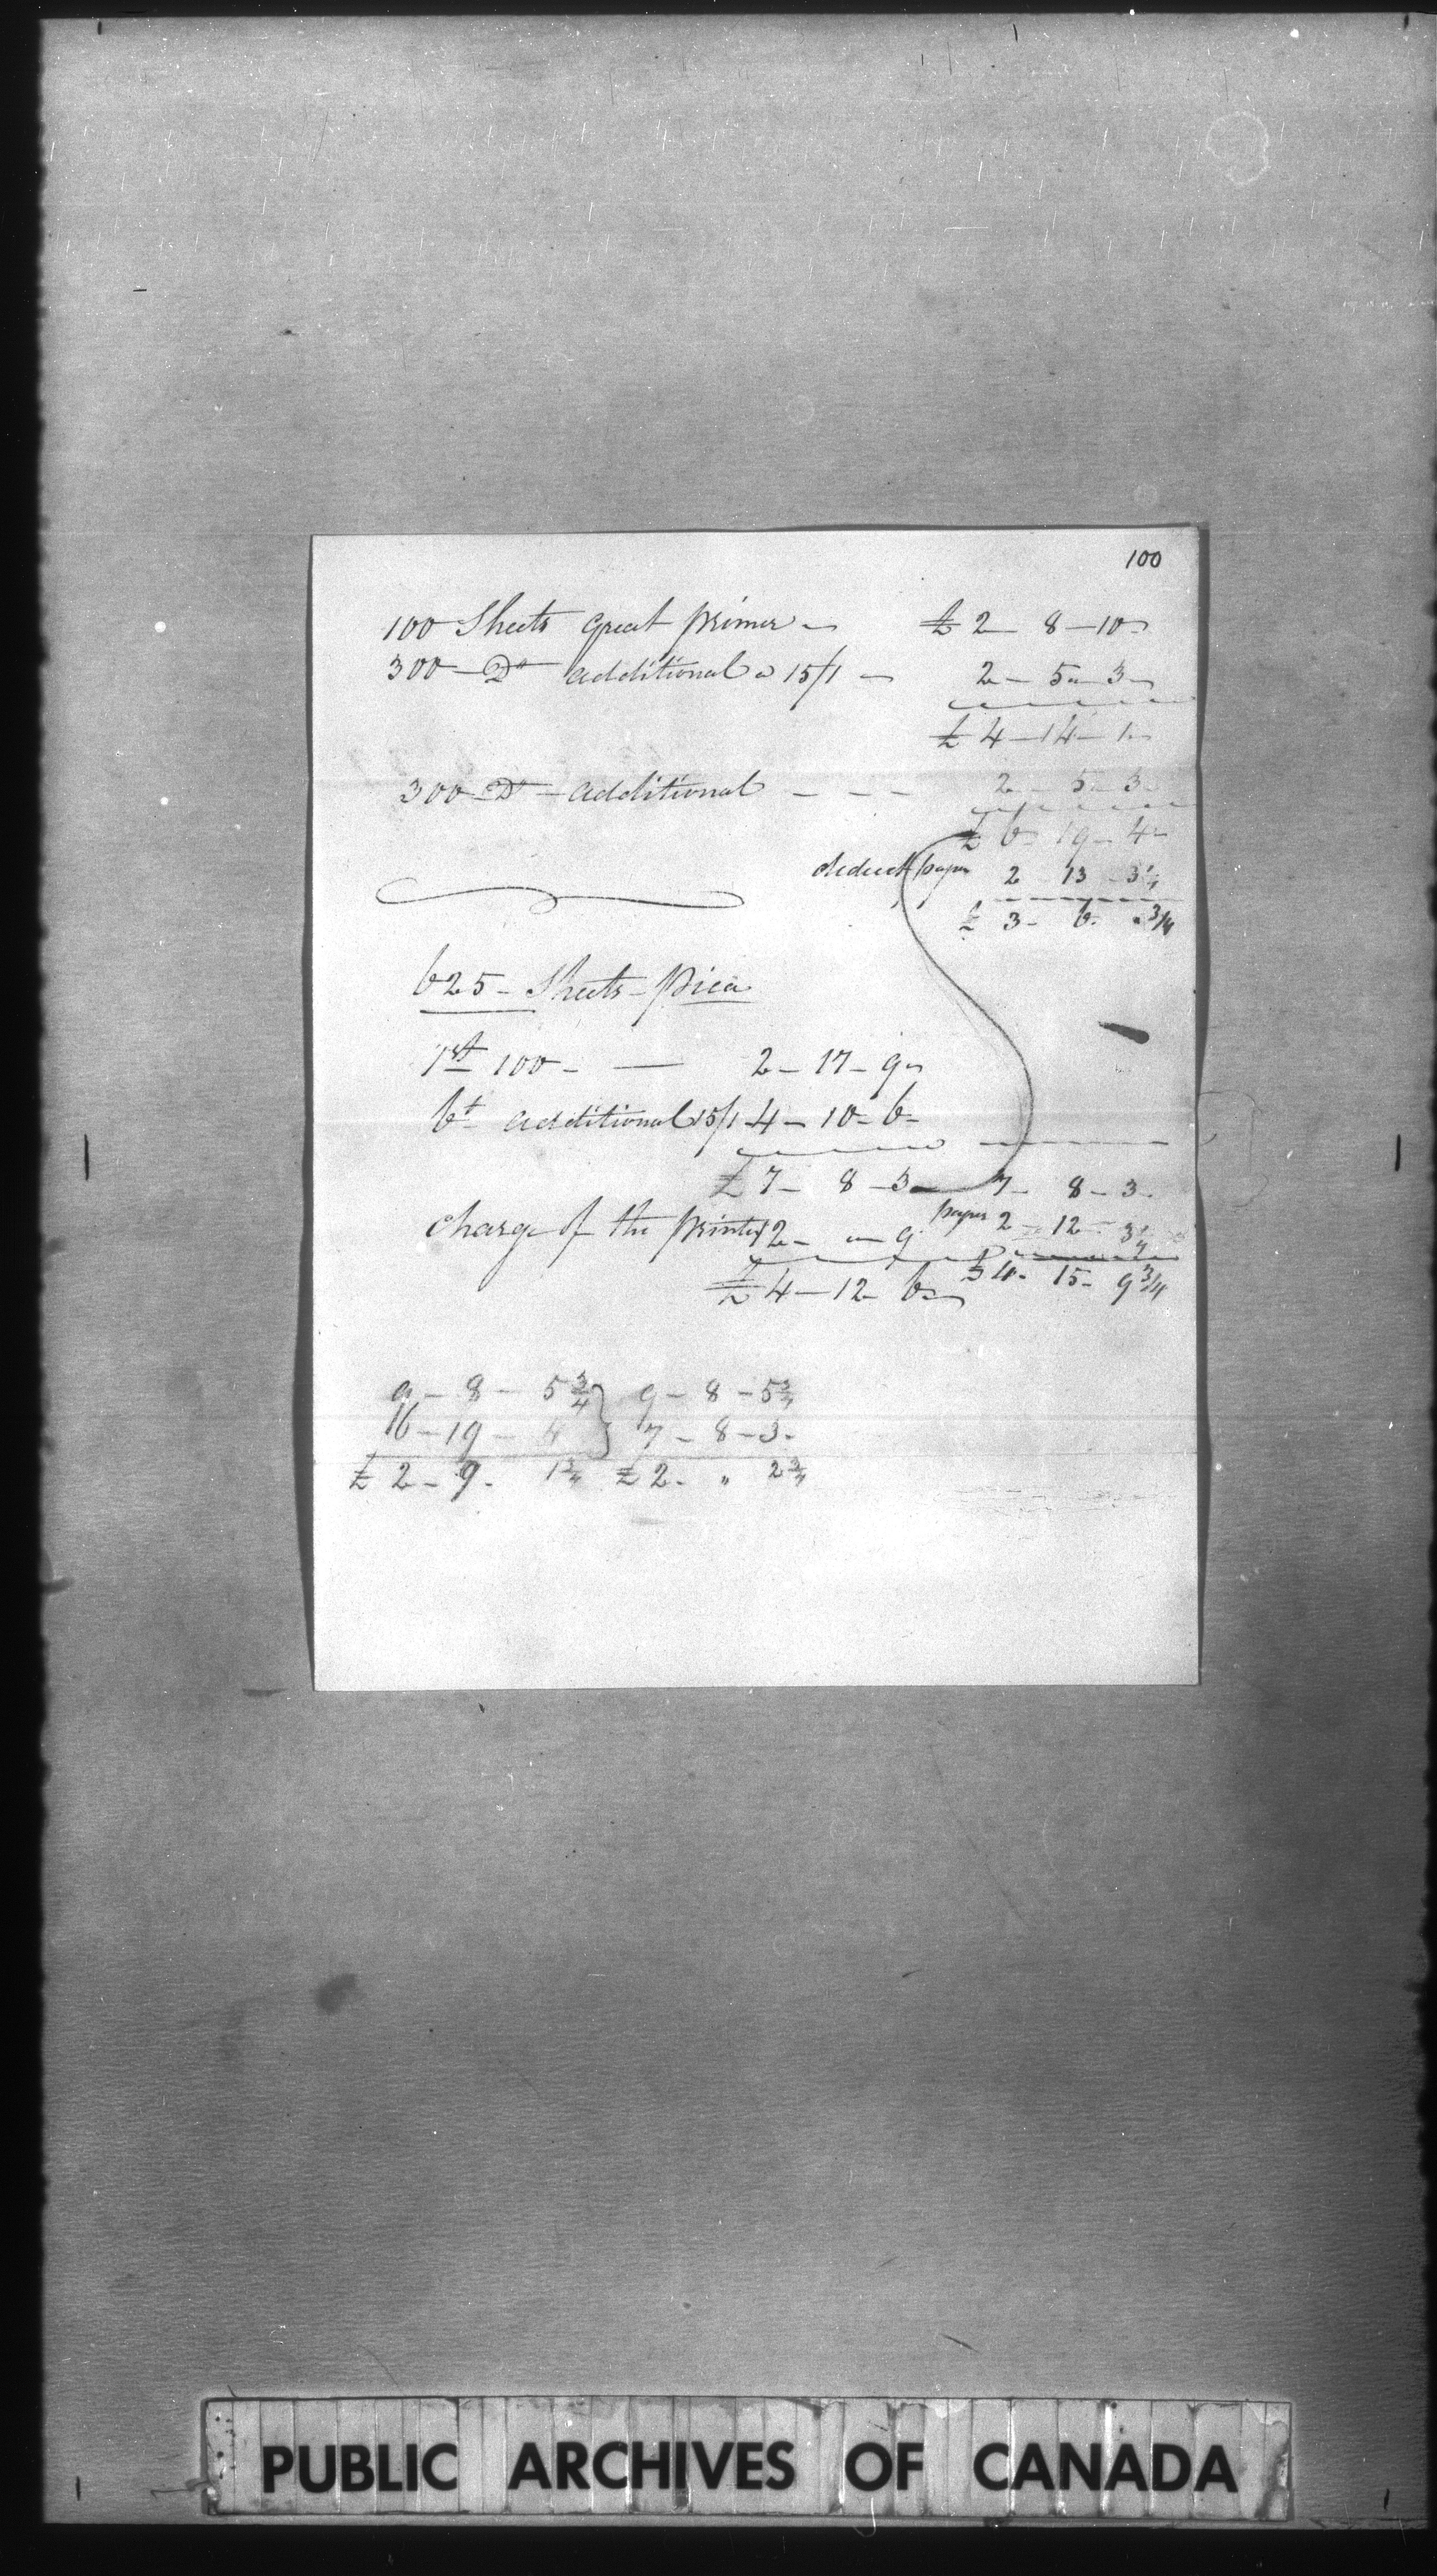 100
100 Sheets Great primer - £ 2 - 8 - 10 -
300 - Do additional a 15/1 - 2 - 5 - 3 -
£ 4 - 14 - 1 -
300 - Do - additional - - - 2 - 5 - 3 -
£ 6 - 19 - 4 -
deduct paper 2 13 - 3 1/4
£ 3 - 6 - . 3/4
625 - Sheets - Pica
1st 100 - — 2 - 17 - 9 -
6t additional 15/1 - 4 - 10 - 6 -
£ 7 - 8 - 3 - 7 - 8 - 3 -
paper 2 - 12 - 3 1/4
charge of the printer 12 - " - 9
£ 4 - 12 - 6 - £ 4 - 15 - 9 3/4
9 - 8 - 5 3/4 } 9 - 8 - 5 3/4
16 - 19 - 4 } 7 - 8 - 3 -
£ 2 - 9 - 1 3/4 £ 2 - " 2 3/4
PUBLIC ARCHIVES OF CANADA